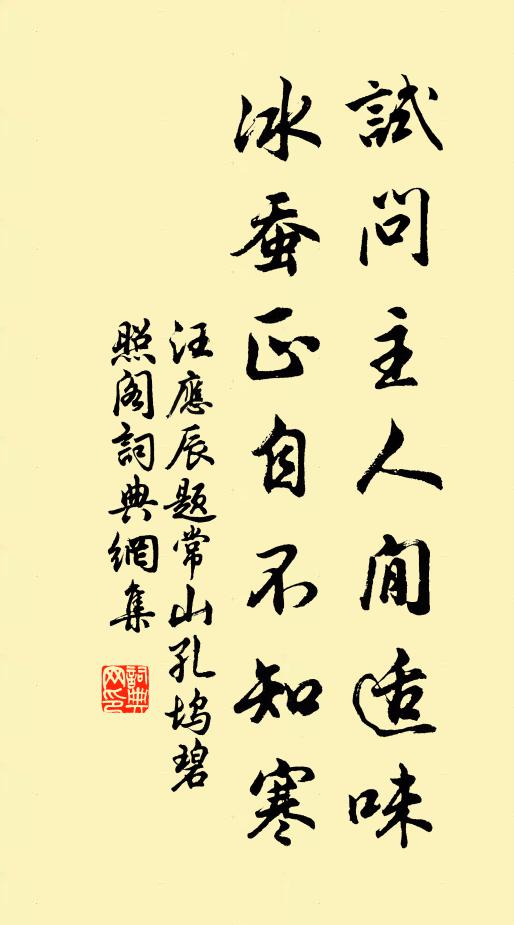 試問主人閒適味
冰蚕正自不知寒
汪應辰題常山孔塢碧
照阁詞典網集
詞典
网印